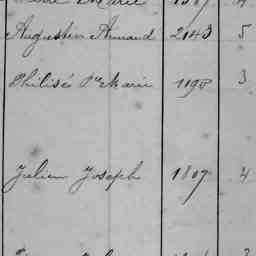 Marie
Augustin Armand 2143 5
Philisé Pre Marie 1198 3
Julien Joseph 1807 4